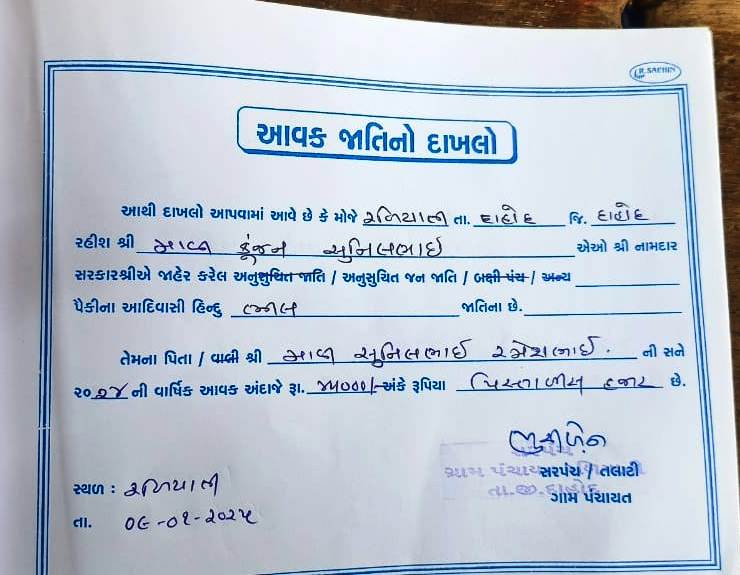 SACHIN
આવક જાતિનો દાખલો
આથી દાખલો આપવામાં આવે છે કે મોજે રળિયાતી તા. દાહોદ જિ. દાહોદ
રહીશ શ્રી માળી કુંજન સુનિલભાઈ એઓ શ્રી નામદાર
સરકારશ્રીએ જાહેર કરેલ અનુસુચિત જાતિ / અનુસુચિત જન જાતિ / બક્ષી પંચ / અન્ય
પૈકીના આદિવાસી હિન્દુ ભીલ જાતિના છે.
તેમના પિતા / વાલી શ્રી સુનિલભાઈ રમેશભાઈ. ની સને
૨૦૨૪ ની વાર્ષિક આવક અંદાજે રૂા. ૪૫૦૦૦/- અંકે રૂપિયા પિસ્તાળીસ હજાર છે.
સરપંચ / તલાટી
ગામ પંચાયત
તા.જી. દાહોદ
સ્થળ : રળિયાતી
તા. ૦૯-૦૧-૨૦૨૫